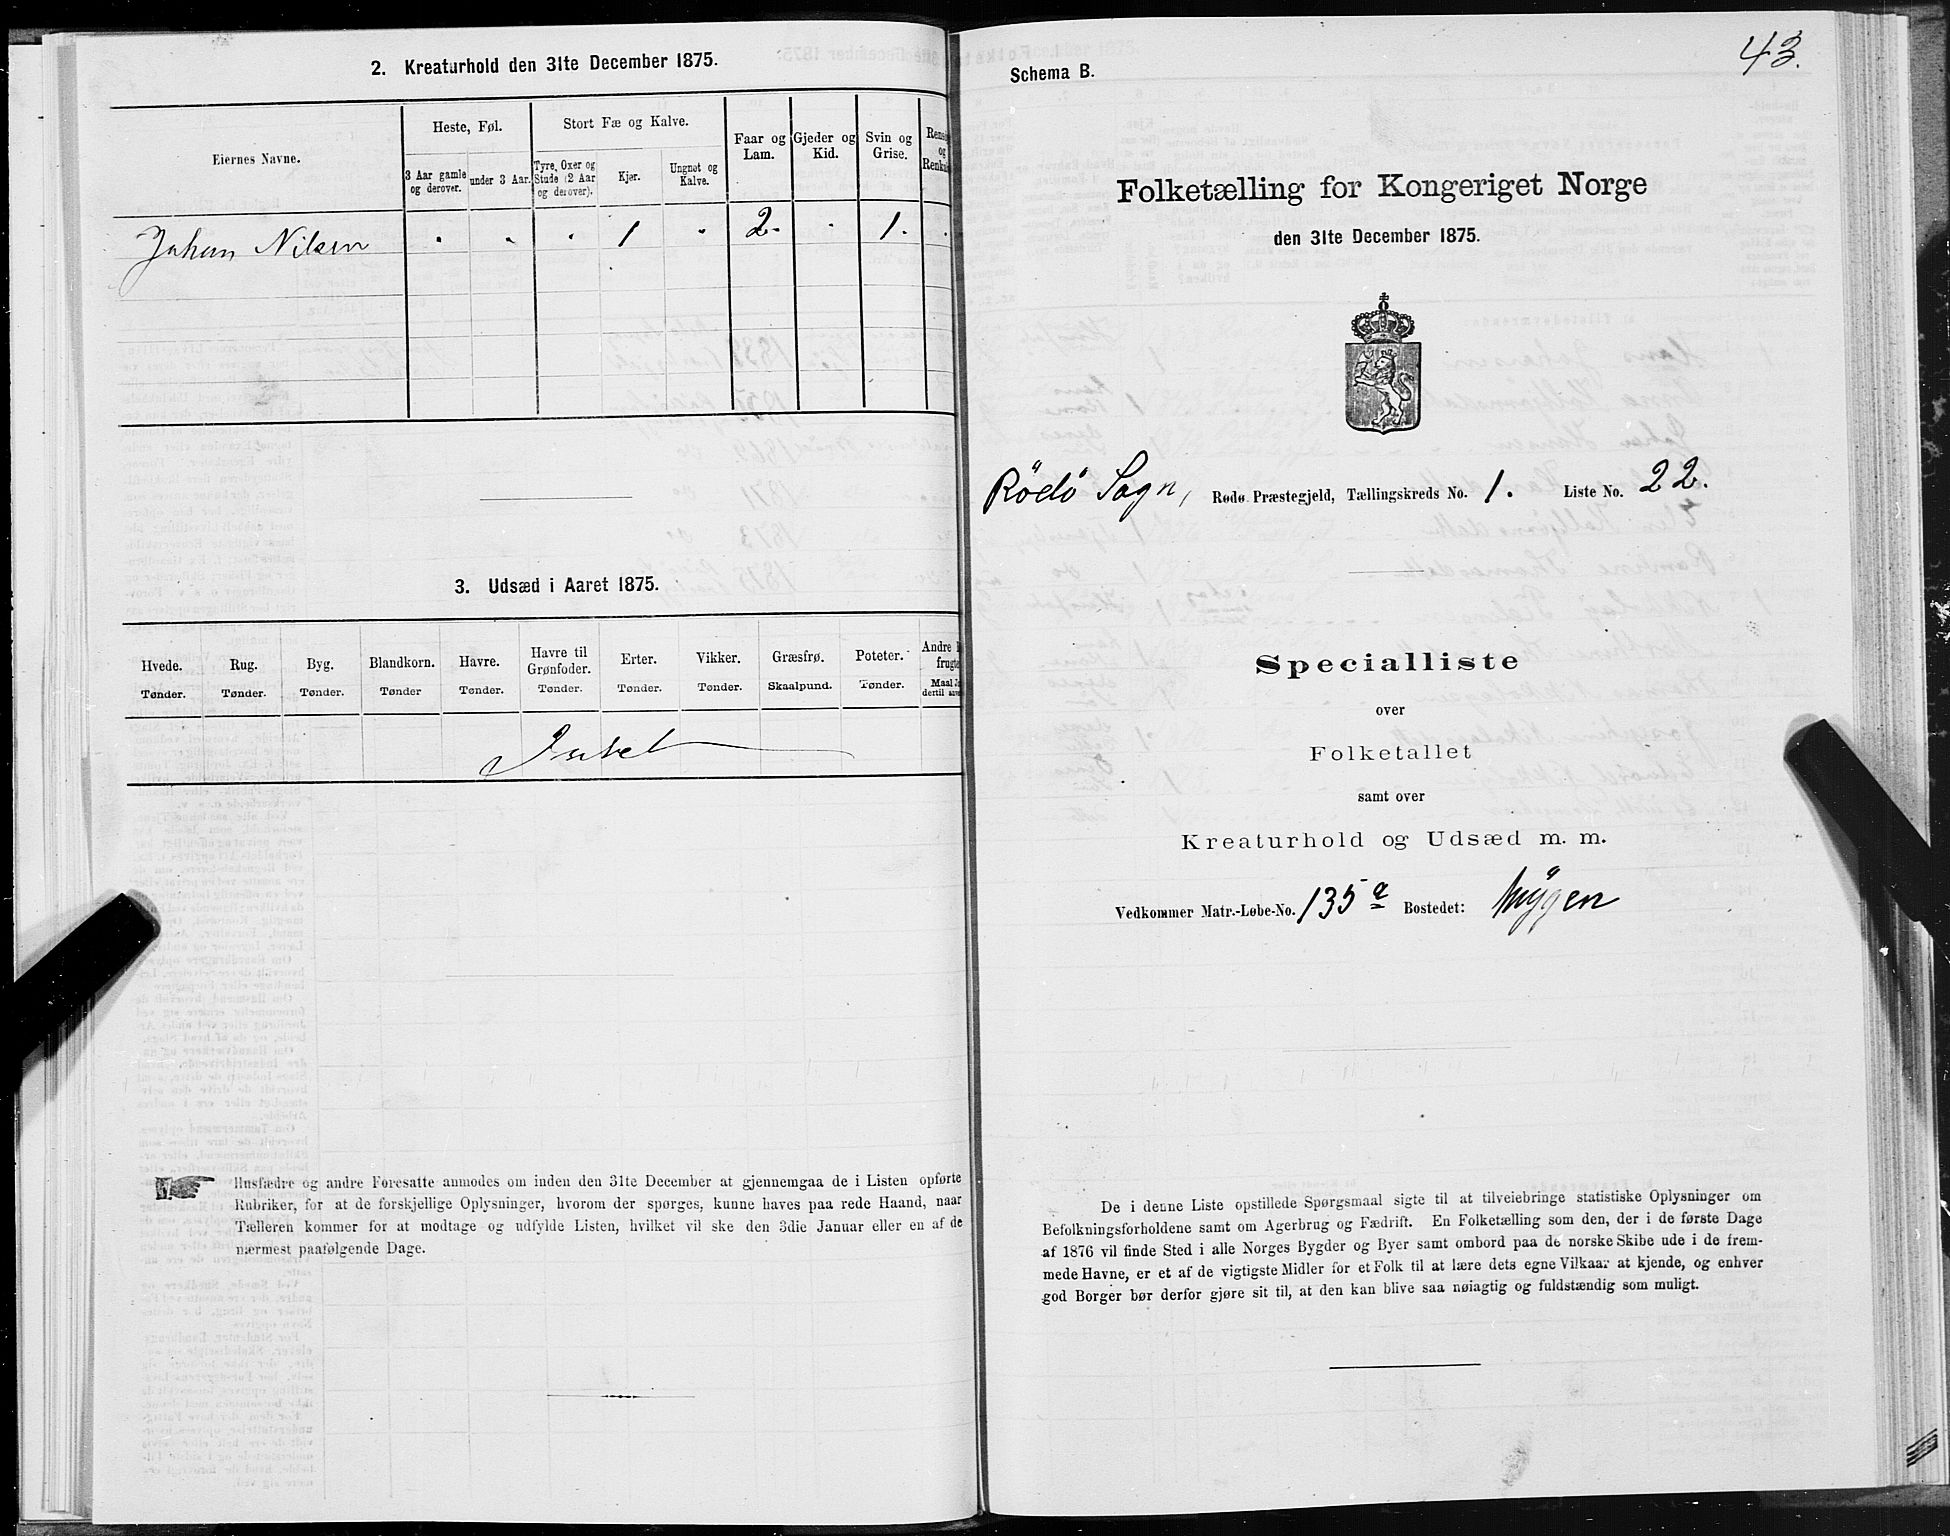 2. Kreaturhold den 31te December 1875.
Eiernes Navne.
Heste, Føl.
Stort Fæ og Kalve.
Faar og Lam.
Gjeder og Kid.
Svin og Grise.
3 Aar gamle og derover.
under 3 Aar.
Tyre, Oxer og Stude (2 Aar og derover).
Kjør.
Ungnøt og Kalve.
Johan Nilsen " " " 1 " 2. " 1. "
3. Udsæd i Aaret 1875.
Hvede. Rug. Byg. Blandkorn. Havre. Havre til Grønfoder. Erter. Vikker. Græsfrø. Poteter. Andre
Tønder. Tønder. Tønder. Tønder Tønder. Tønder. Tønder. Tønder. Skaalpund. Tønder. Maal
Intet
Husfædre og andre Foresatte anmodes om inden den 31te December at gjennemgaa de i Listen opførte
Rubriker, for at de forskjellige Oplysninger, hvorom der spørges, kunne haves paa rede Haand, naar
Tælleren kommer for at modtage og udfylde Listen, hvilket vil ske den 3die Januar eller en af de
nærmest paafølgende Dage.
43.
Schema B.
Folketælling for Kongeriget Norge
den 31te December 1875.
Rödö Sogn, Rødø Præstegjeld, Tællingskreds No. 1. Liste No. 22.
Specialliste
over
Folketallet
samt over
Kreaturhold og Udsæd m. m.
Vedkommer Matr.-Løbe-No. 135 a Bostedet: Mygen
De i denne Liste opstillede Spørgsmaal sigte til at tilveiebringe statistiske Oplysninger om
Befolkningsforholdene samt om Agerbrug og Fædrift. En Folketælling som den, der i de første Dage
af 1876 vil finde Sted i alle Norges Bygder og Byer samt ombord paa de norske Skibe ude i de frem-
mede Havne, er et af de vigtigste Midler for et Folk til at lære dets egne Vilkaar at kjende, og enhver
god Borger bør derfor gjøre sit til, at den kan blive saa nøiagtig og fuldstændig som muligt.